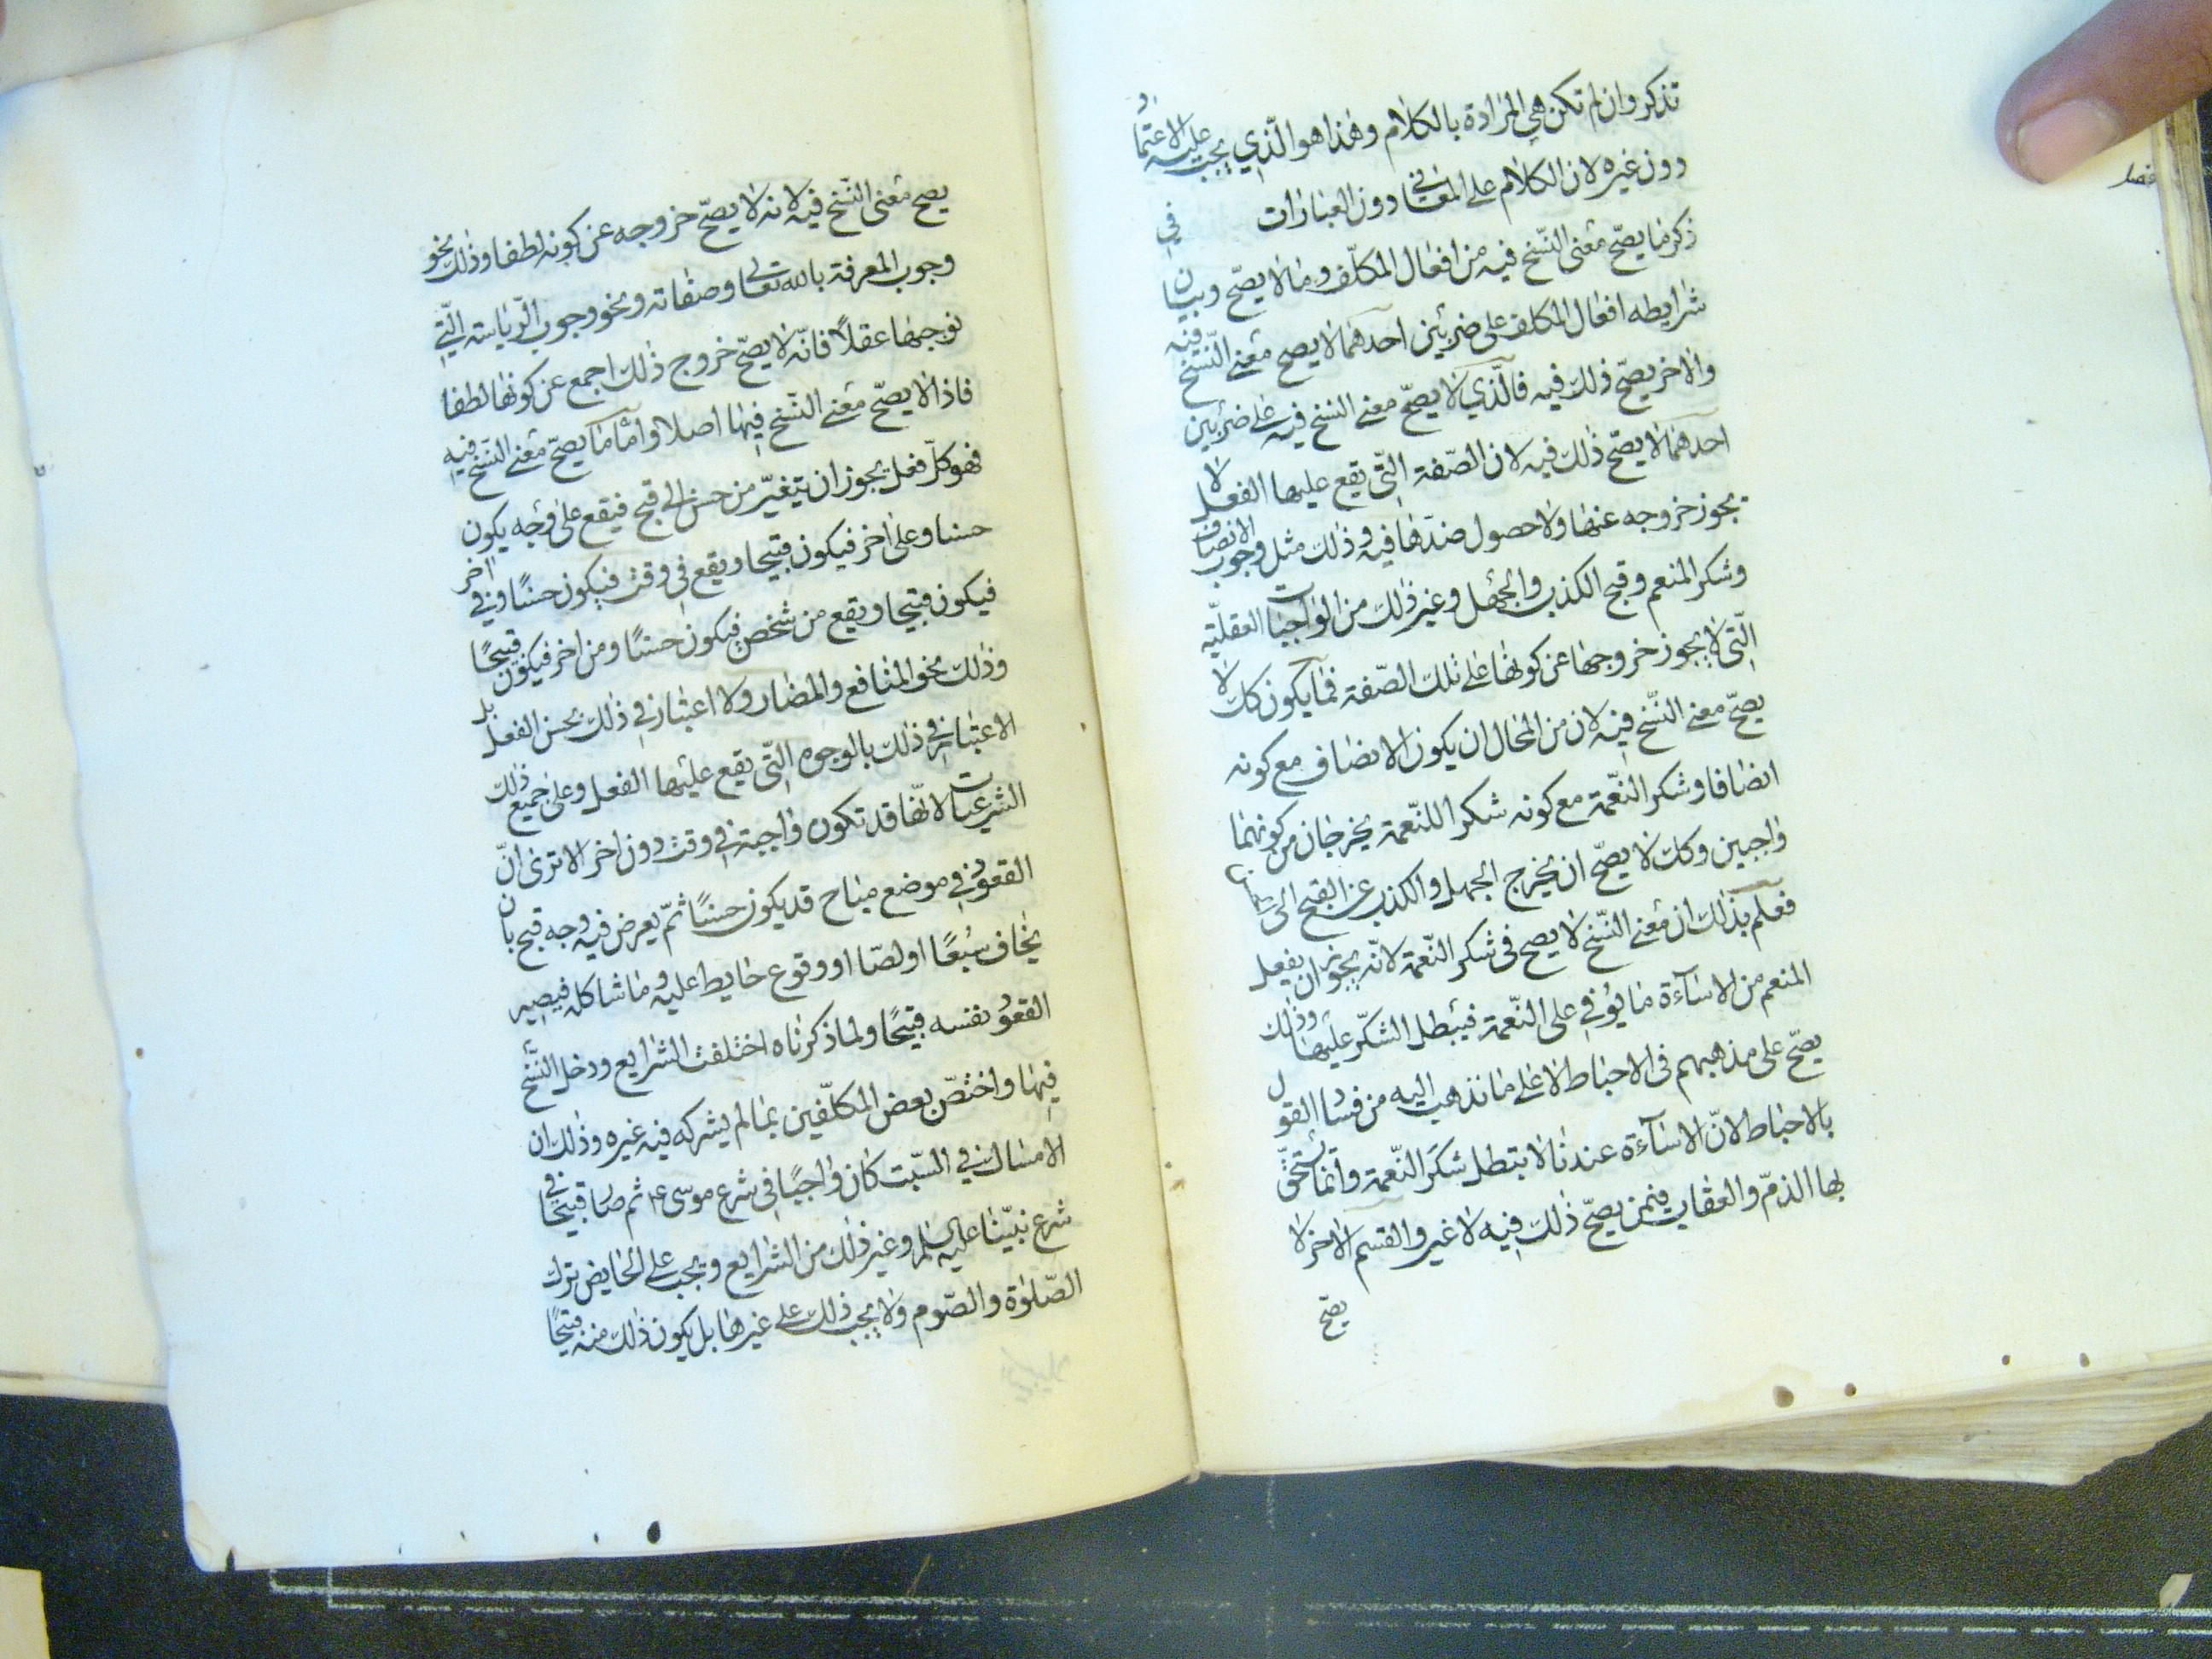 تذكر وان لم تكن هي المرادة بالكلام وهذا هو الّذي يجب عليه الاعتماد
دون غيره لان الكلام على المعاني دون العبارات في
فصل
ذكر ما يصحّ معنى النّسخ فيه من افعال المكلّف وما لا يصحّ وبيان
شرايطه افعال المكلف على ضربين احدهما لا يصح معنى النّسخ فيه
والاخر يصحّ ذلك فيه فالّذي لا يصحّ معنى النسخ فيه على ضربين
احدهما لا يصحّ ذلك فيه لان الصّفة الّتي يقع عليها الفعل لا
يجوز خروجه عنها ولا حصول ضدّها فيه وذلك مثل وجوب الانصاف
وشكر المنعم وقبح الكذب والجهل وغير ذلك من الواجبات العقليّه
الّتي لا يجوز خروجها عن كونها على تلك الصّفة فما يكون كك لا
يصحّ معنى النّسخ فيه لان من المحال ان يكون الانصاف مع كونه
انصافا وشكر النّعمة مع كونه شكرا للنّعمة يخرجان من كونهما
واجبين وكك لا يصحّ ان يخرج الجهل والكذب عن القبح الى
فعلم بذلك ان معنى النّسخ لا يصح في شكر النّعمة لانّه يجوز ان يفعل
المنعم من الاسآءة ما يوفي على النّعمة فيبطل الشكّر عليها وذلك
يصحّ على مذهبهم في الاحباط لا على ما نذهب اليه من فساد القول
بالاحباط لانّ الاسآءة عندنا لا بتطل شكر النّعمة وانّما يستحقّ
بها الذمّ والعقاب فنمن يصحّ ذلك فيه لا غير والقسم الاخر لا
يصحّ
يصح معنى النّسخ فيه لانه لا يصحّ خروجه عن كونه لطفا وذلك نحو
وجوب المعرفة بالله تعالى وصفاته ونحو وجوب الرّياسة الّتي
نوجبها عقلاً فانّه لا يصحّ خروج ذلك اجمع عن كونها لطفا
فاذا لا يصحّ معنى النّسخ فيها اصلا وامّا ما يصحّ معنى النّسخ فيه
فهو كلّ فعل يجوز ان يتغيّر من حسن الى قبح فيقع على وجه يكون
حسنا وعلى اخر فيكون قبيحا ويقع في وقت فيكون حسنًا وفي اخر
فيكون قبيحا ويقع من شخص فيكون حسنًا ومن اخر فيكون قبيحًا
وذلك نحو المنافع والمضار ولا اعتبار في ذلك بحسن الفعل بل
الاعتبار في ذلك بالوجوه الّتي يقع عليها الفعل وعلى جميع ذلك
الشرعيات لانّها قد تكون واجبة في وقت دون اخر الا ترى انّ
القعود في موضع مباح قد يكون حسنًا ثمّ يعرض فيه وجه قبح بان
يخاف سبُعًا او لصّا او وقوع حايط عليه وما شاكله فيصير
القعود نفسه قبيحًا ولما ذكرناه اختلفت الشرايع ودخل النّسخ
فيها واختصّ بعض المكلّفين بما لم يشركه فيه غيره وذلك ان
الامساك في السّبت كان واجبًا في شرع موسى ع ثم صار قبيحًا في
شرع نبيّنا عليه السلم وغير ذلك من الشرايع ويجب على الحايض ترك
الصّلوة والصّوم ولا يجب ذلك على غيرها بل يكون ذلك منه قبيحًا